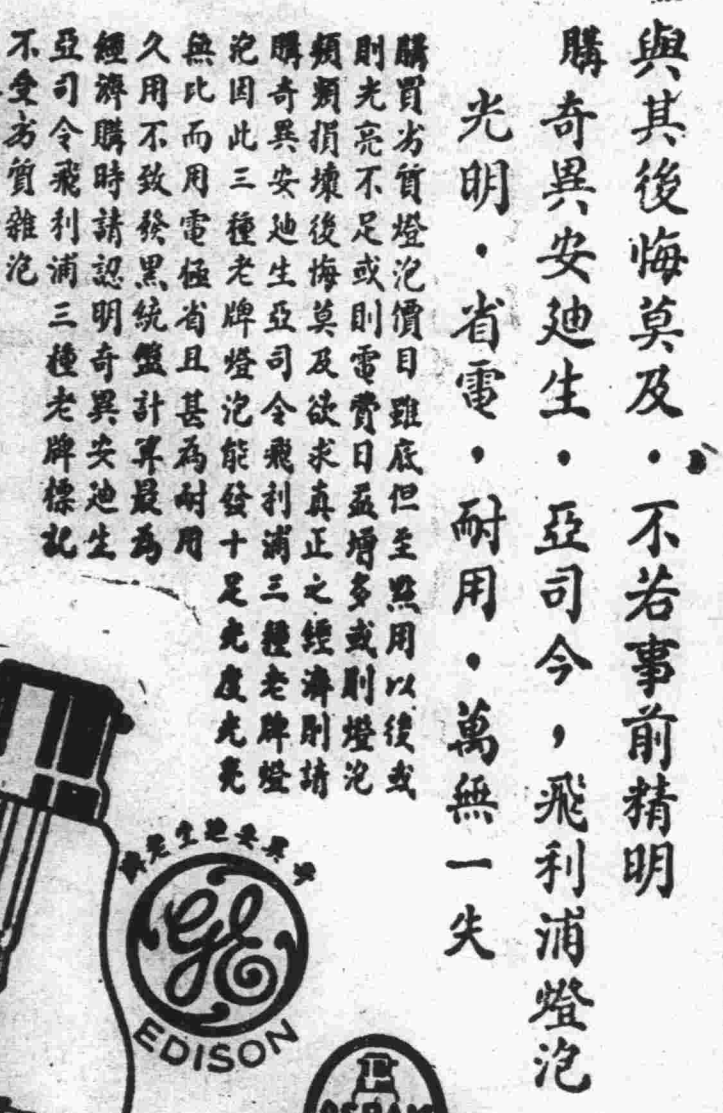 與其後悔莫及．不若事前精明
購奇異安廸生．亞司令，飛利浦燈泡
光明．省電，耐用．萬無一失
購買劣質燈泡價目雖底但至點用以後或
則光亮不足或則電費日益增多或則燈泡
類類損壞後悔莫及欲求真正之經濟則請
購奇異安廸生亞司令飛利浦三種老牌燈
泡因此三種老牌燈泡能發十足光度光亮
無比而用電極省且甚為耐用
久用不致發黑統盤計算最為
經濟購時請認明奇異安廸生
亞司令飛利浦三種老牌標記
不受劣質雜泡
奇異安廸生電泡
GE
EDISON
OSRAM